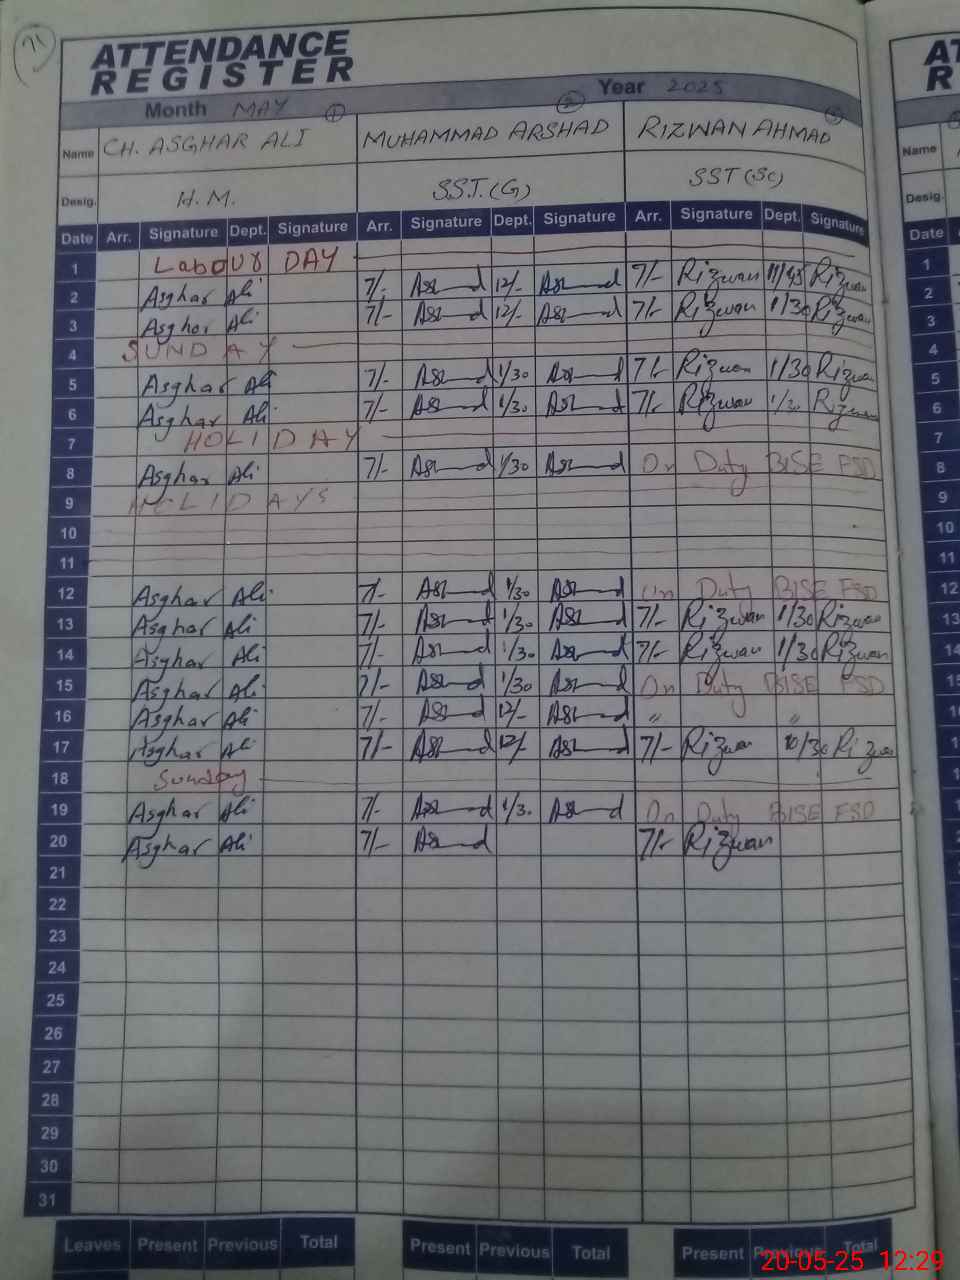 71
ATTENDANCE
REGISTER
Month MAY 1 Year 2025 2 3
Name CH. ASGHAR ALI MUHAMMAD ARSHAD RIZWAN AHMAD
Desig. H.M. SST.(G) SST (Sc)
Date Arr. Signature Dept. Signature Arr. Signature Dept. Signature Arr. Signature Dept. Signature
1 Labour DAY
2 Asghar Ali 7/- 12/- 7/- Rizwan 11/45 Rizwan
3 Asghar Ali 7/- 12/- 7/- Rizwan 1/30 Rizwan
4 SUNDAY
5 Asghar Ali 7/- 1/30 7/- Rizwan 1/30 Rizwan
6 Asghar Ali 7/- 1/30 7/- Rizwan 1/30 Rizwan
7 HOLIDAY
8 Asghar Ali 7/- 1/30 On Duty BISE FSD
9 HOLIDAYS
10
11
12 Asghar Ali 7/- 1/30 On Duty BISE FSD
13 Asghar Ali 7/- 1/30 7/- Rizwan 1/30 Rizwan
14 Asghar Ali 7/- 1/30 7/- Rizwan 1/30 Rizwan
15 Asghar Ali 7/- 1/30 On Duty BISE FSD
16 Asghar Ali 7/- 12/- " "
17 Asghar Ali 7/- 12/- 7/- Rizwan 10/30 Rizwan
18 Sunday
19 Asghar Ali 7/- 1/30 On Duty BISE FSD
20 Asghar Ali 7/- 7/- Rizwan
21
22
23
24
25
26
27
28
29
30
31
Leaves Present Previous Total Present Previous Total Present Previous Total
20-05-25 12:29
AT
R
Name
Desig.
Date
1
2
3
4
5
6
7
8
9
10
11
12
13
14
15